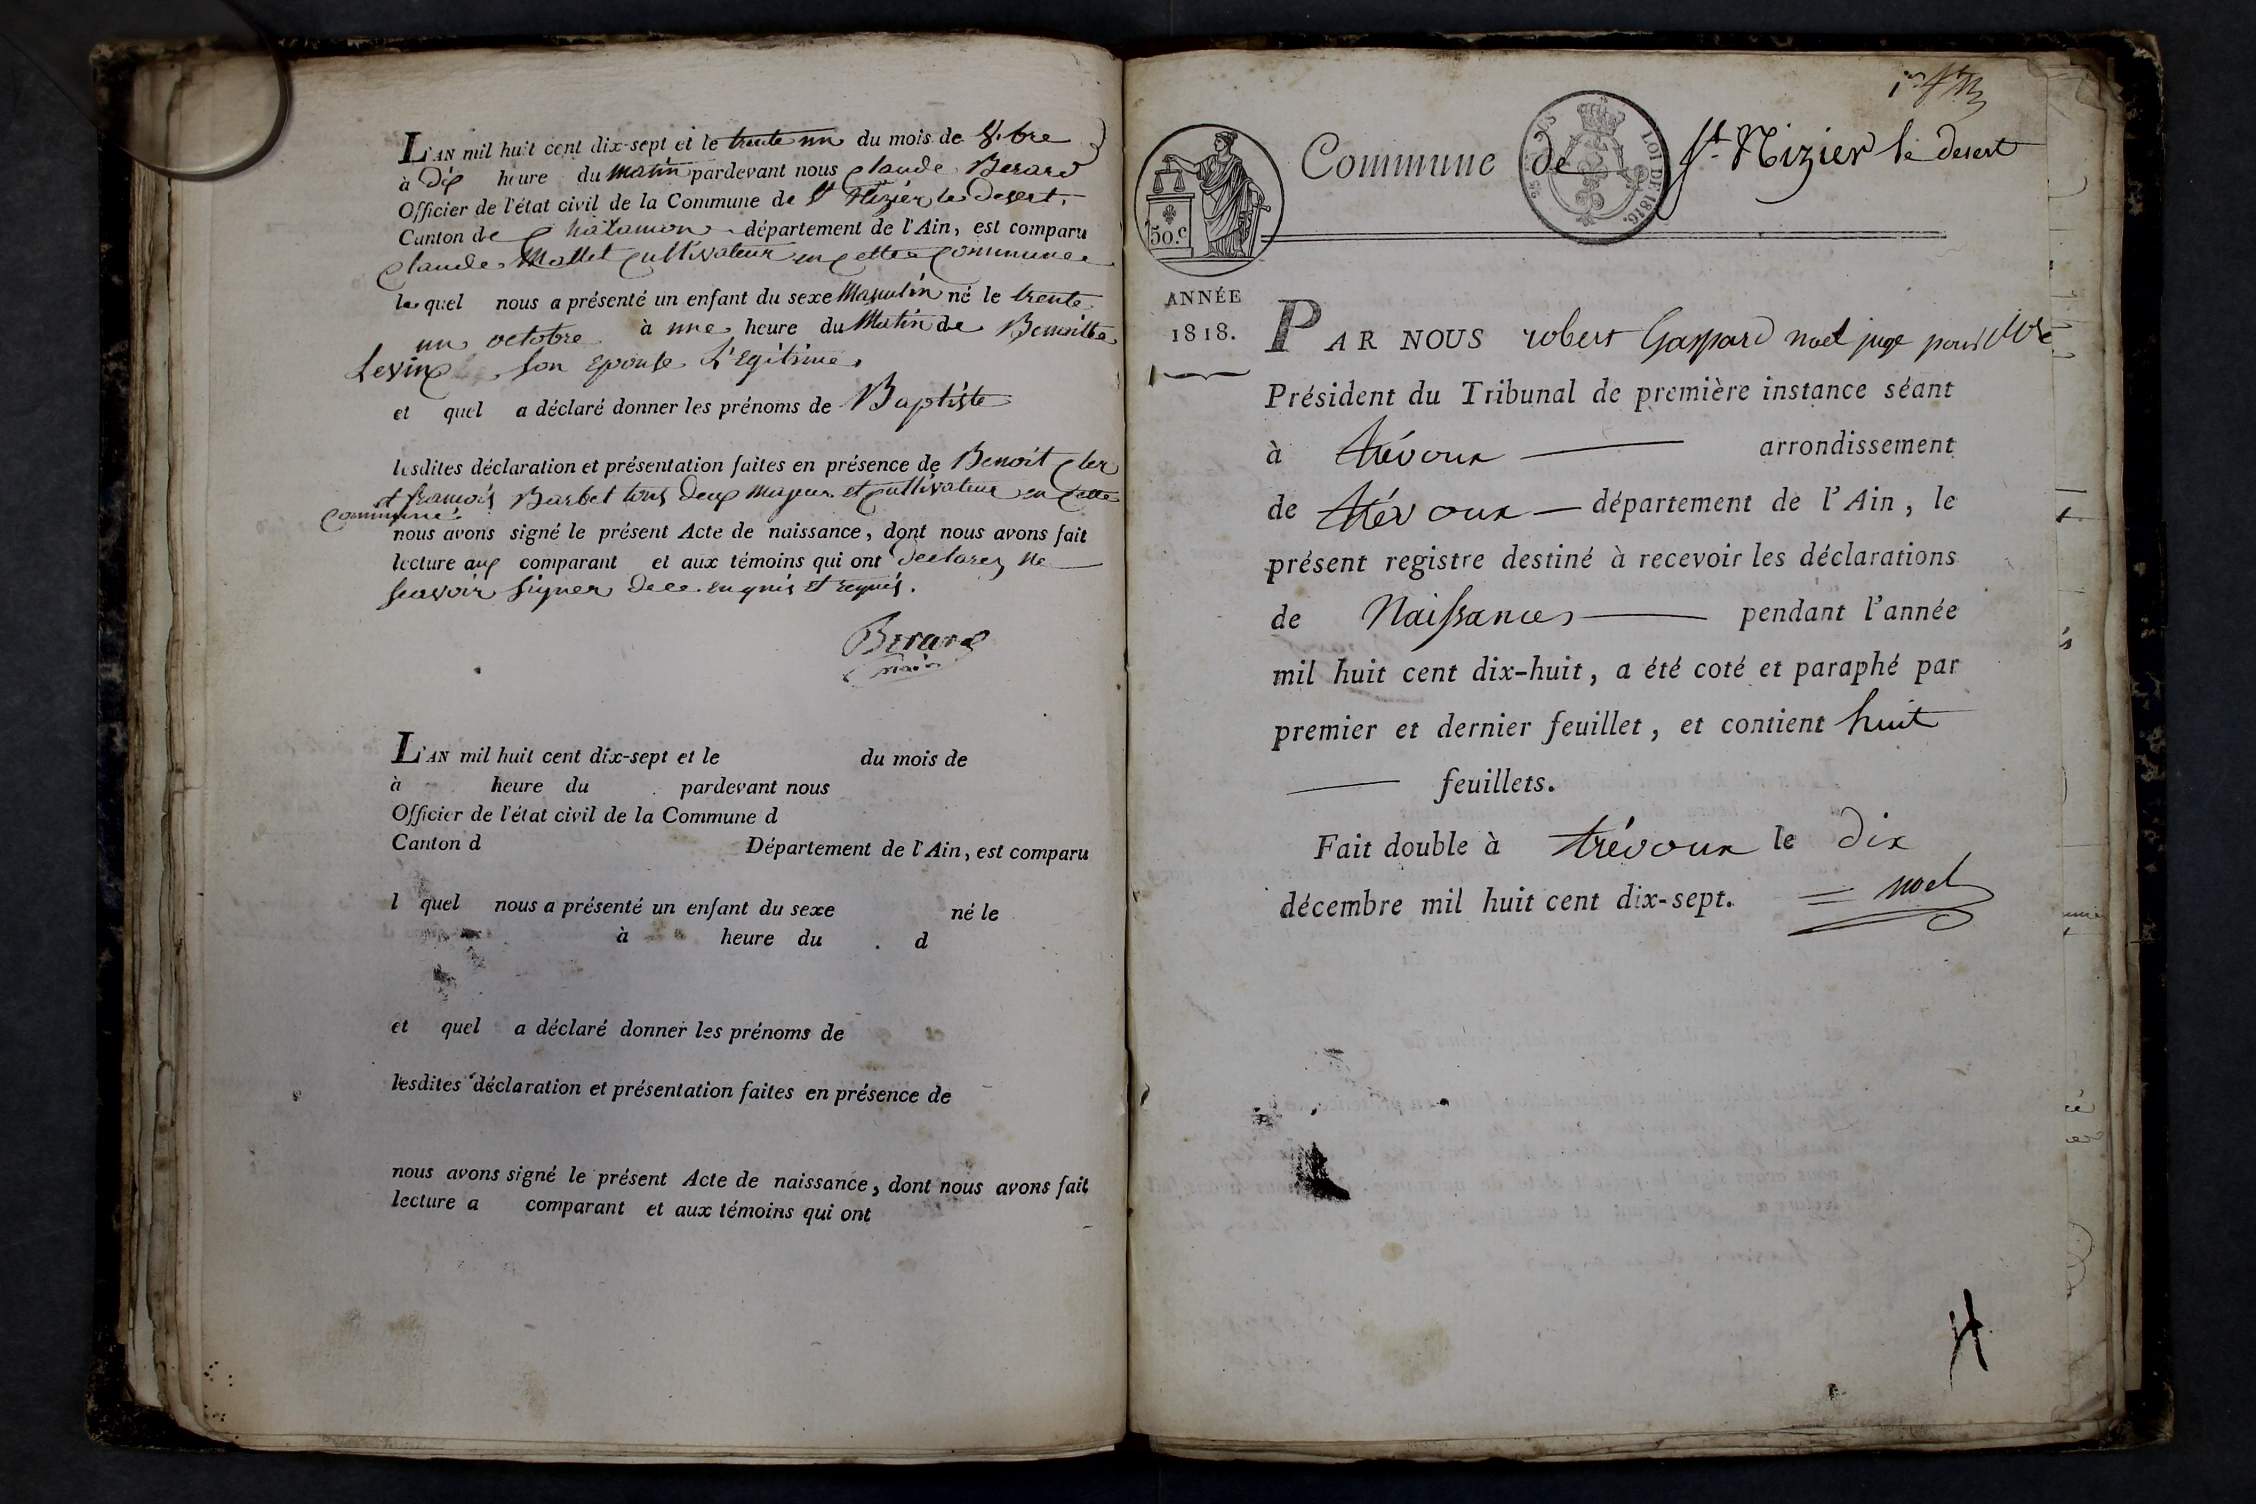 L'AN mil huit cent dix-sept et le trente un du mois de 8.bre
à dix heure du matin pardevant nous claude Berard
Officier de l'état civil de la Commune de St Nizier le desert,
Canton de chalamon département de l'Ain, est comparu
claude Mollet cultivateur en cette commune
le quel nous a présenté un enfant du sexe Masculin né le trente
un octobre à une heure du Matin de Benoitte
son Epouse L'Egitime
et quel a déclaré donner les prénoms de Baptiste
lesdites déclaration et présentation faites en présence de Benoit
et francois Barbet tous deux majeur et cultivateur en cette
commune
nous avons signé le présent Acte de naissance, dont nous avons fait
lecture aux comparant et aux témoins qui ont declarez ne
scavoir signer de ce enquis et requis.
Berard
maire
L'AN mil huit cent dix-sept et le du mois de
à heure du pardevant nous
Officier de l'état civil de la Commune d
Canton d Département de l'Ain, est comparu
l quel nous a présenté un enfant du sexe né le
à heure du d
et quel a déclaré donner les prénoms de
lesdites déclaration et présentation faites en présence de
nous avons signé le présent Acte de naissance, dont nous avons fait
lecture a comparant et aux témoins qui ont
Commune de St Nizier le desert
LOI DE 1816.
50.c
ANNÉE
1818.
PAR NOUS robert Gaspard noel juge pour le
Président du Tribunal de première instance séant
à trévoux arrondissement
de trévoux département de l'Ain, le
présent registre destiné à recevoir les déclarations
de Naissances pendant l'année
mil huit cent dix-huit, a été coté et paraphé par
premier et dernier feuillet, et contient huit
feuillets.
Fait double à trévoux le dix
décembre mil huit cent dix-sept. noel